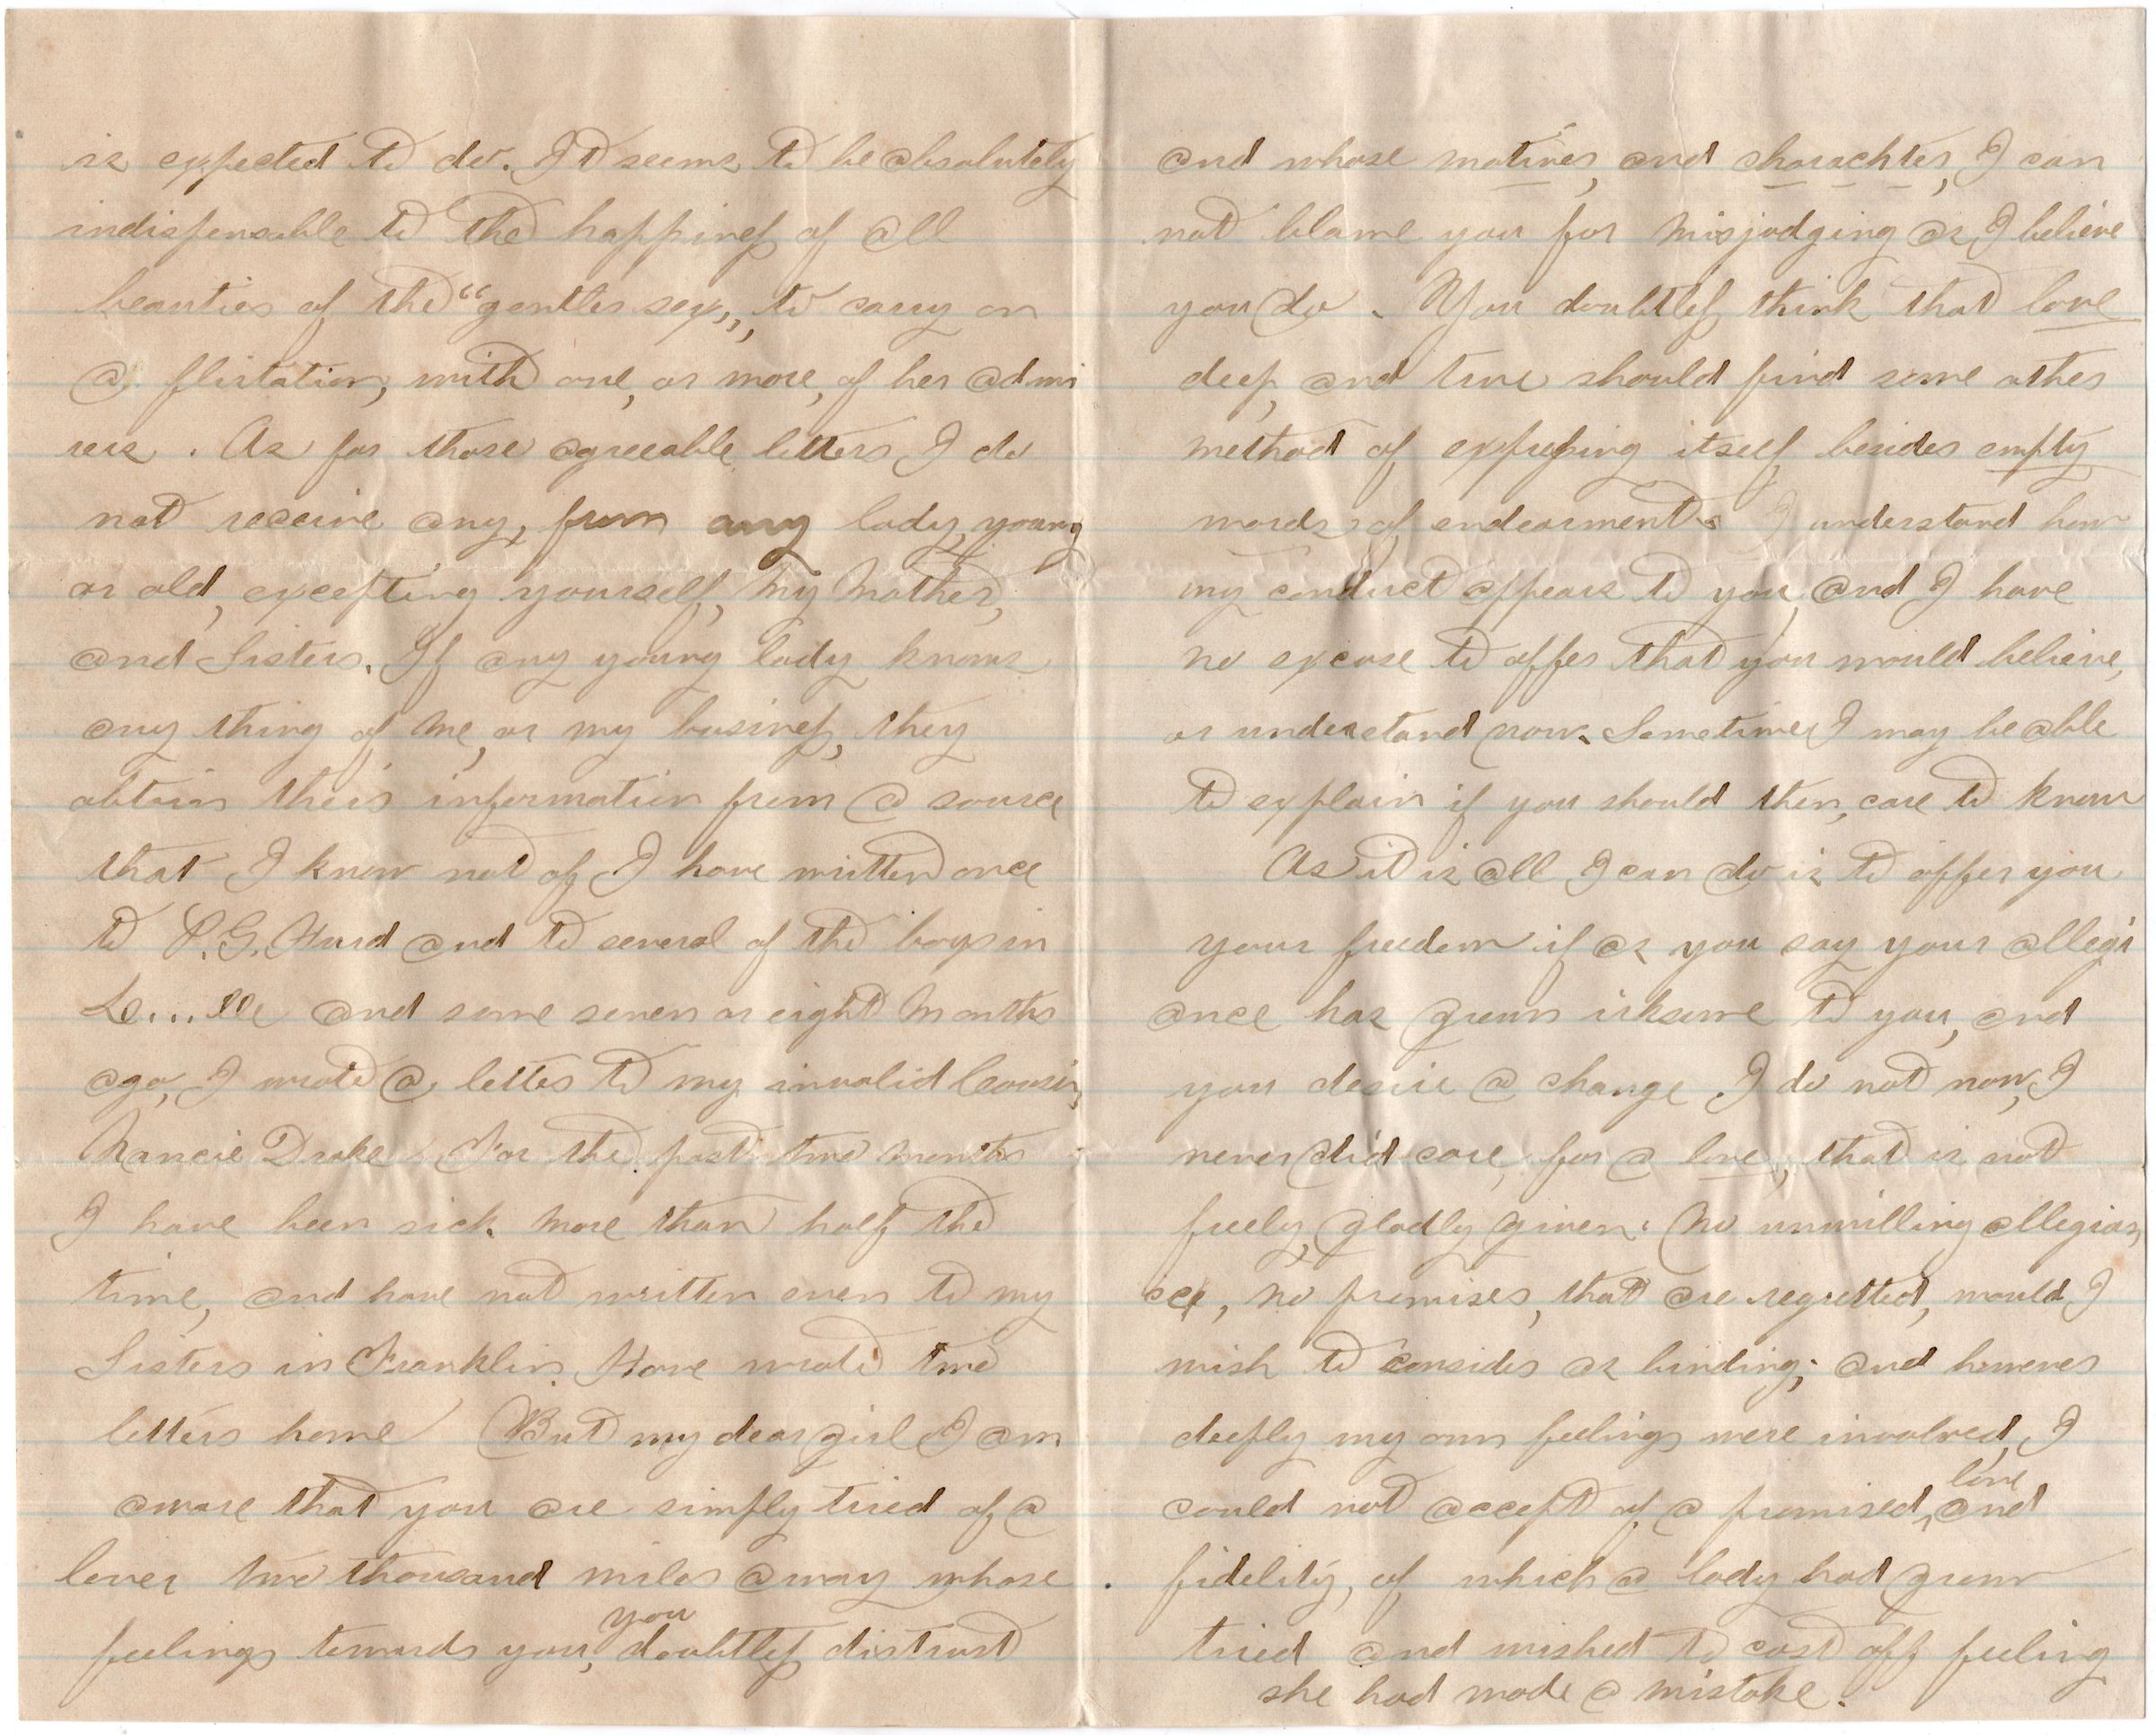 is expected to do. It seems to be absolutely
indispensable to the happiness of all
beauties of the "gentler sex," to carry on
a flirtation, with one, or more, of her admi
rers. As for those agreeable letters I do
not receive any, from any lady, young
or old, excepting yourself, My Mother,
and Sisters. If any young lady knows
any thing of me, or my business, they
obtain their information from a source
that I know not of. I have written once
to P.G. Hurd and to several of the boys in
Le...lle and some seven or eight Months
ago, I wrote a letter to my invalid Cousin,
Nancie Drake. For the past two months
I have been sick more than half the
time, and have not written even to my
Sisters in Franklin. Have wrote two
letters home But my dear girl I am
aware that you are simply tired of a
lover two thousand miles away whose
feelings towards you, you doubtless distrust
and whose motives, and charachter, I can
not blame you for misjudging as, I believe
you do. You doubtless think that love
deep, and true should find some other
method of expressing itself besides empty
words, of endearments. I understand how
my conduct appears to you, and I have
no excuse to offer that you would believe,
or understand now. Sometime I may be able
to explain if you should then, care to know
As it is all I can do is to offer you
your freedom if as you say your allegi
ance has grown irksome to you, and
you desire a change. I do not now, I
never did care, for a love, that is not
freely, gladly given. No unwilling allegian
ce, no promises, that are regretted, would I
wish to consider as binding; and however
deeply my own feelings were involved, I
could not accept of a promised, love and
fidelity, of which a lady had grown
tired and wished to cast off feeling
she had made a mistake.